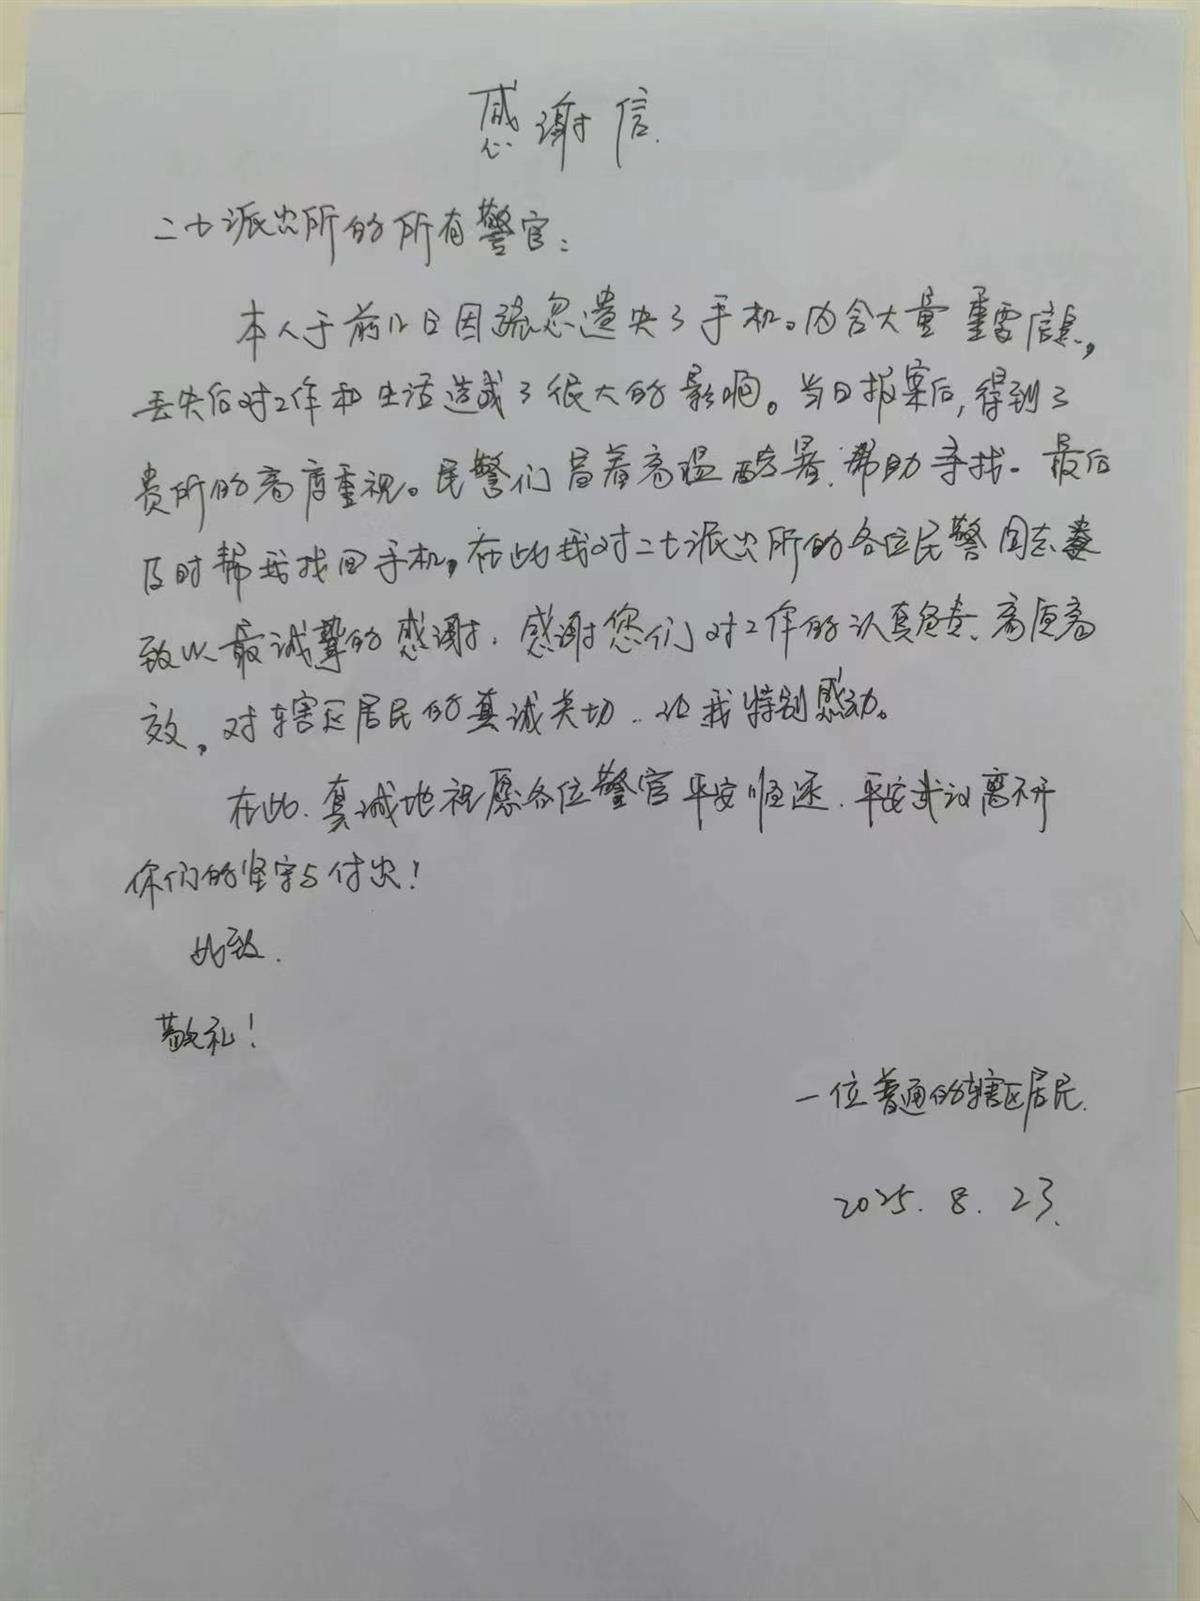 感谢信.
二七派出所的所有警官：
本人于前几日因疏忽遗失了手机。内含大量重要信息，
丢失后对工作和生活造成了很大的影响。当日报案后，得到了
贵所的高度重视。民警们冒着高温酷暑.帮助寻找。最后
及时帮我找回手机，在此我对二七派出所的各位民警同志
致以最诚挚的感谢.感谢您们对工作的认真负责、高质高
效，对辖区居民的真诚关切..让我特别感动。
在此.真诚地祝愿各位警官平安顺遂.平安武汉离不开
你们的坚守与付出！
此致.
敬礼！
一位普通的辖区居民.
2025.8.23.